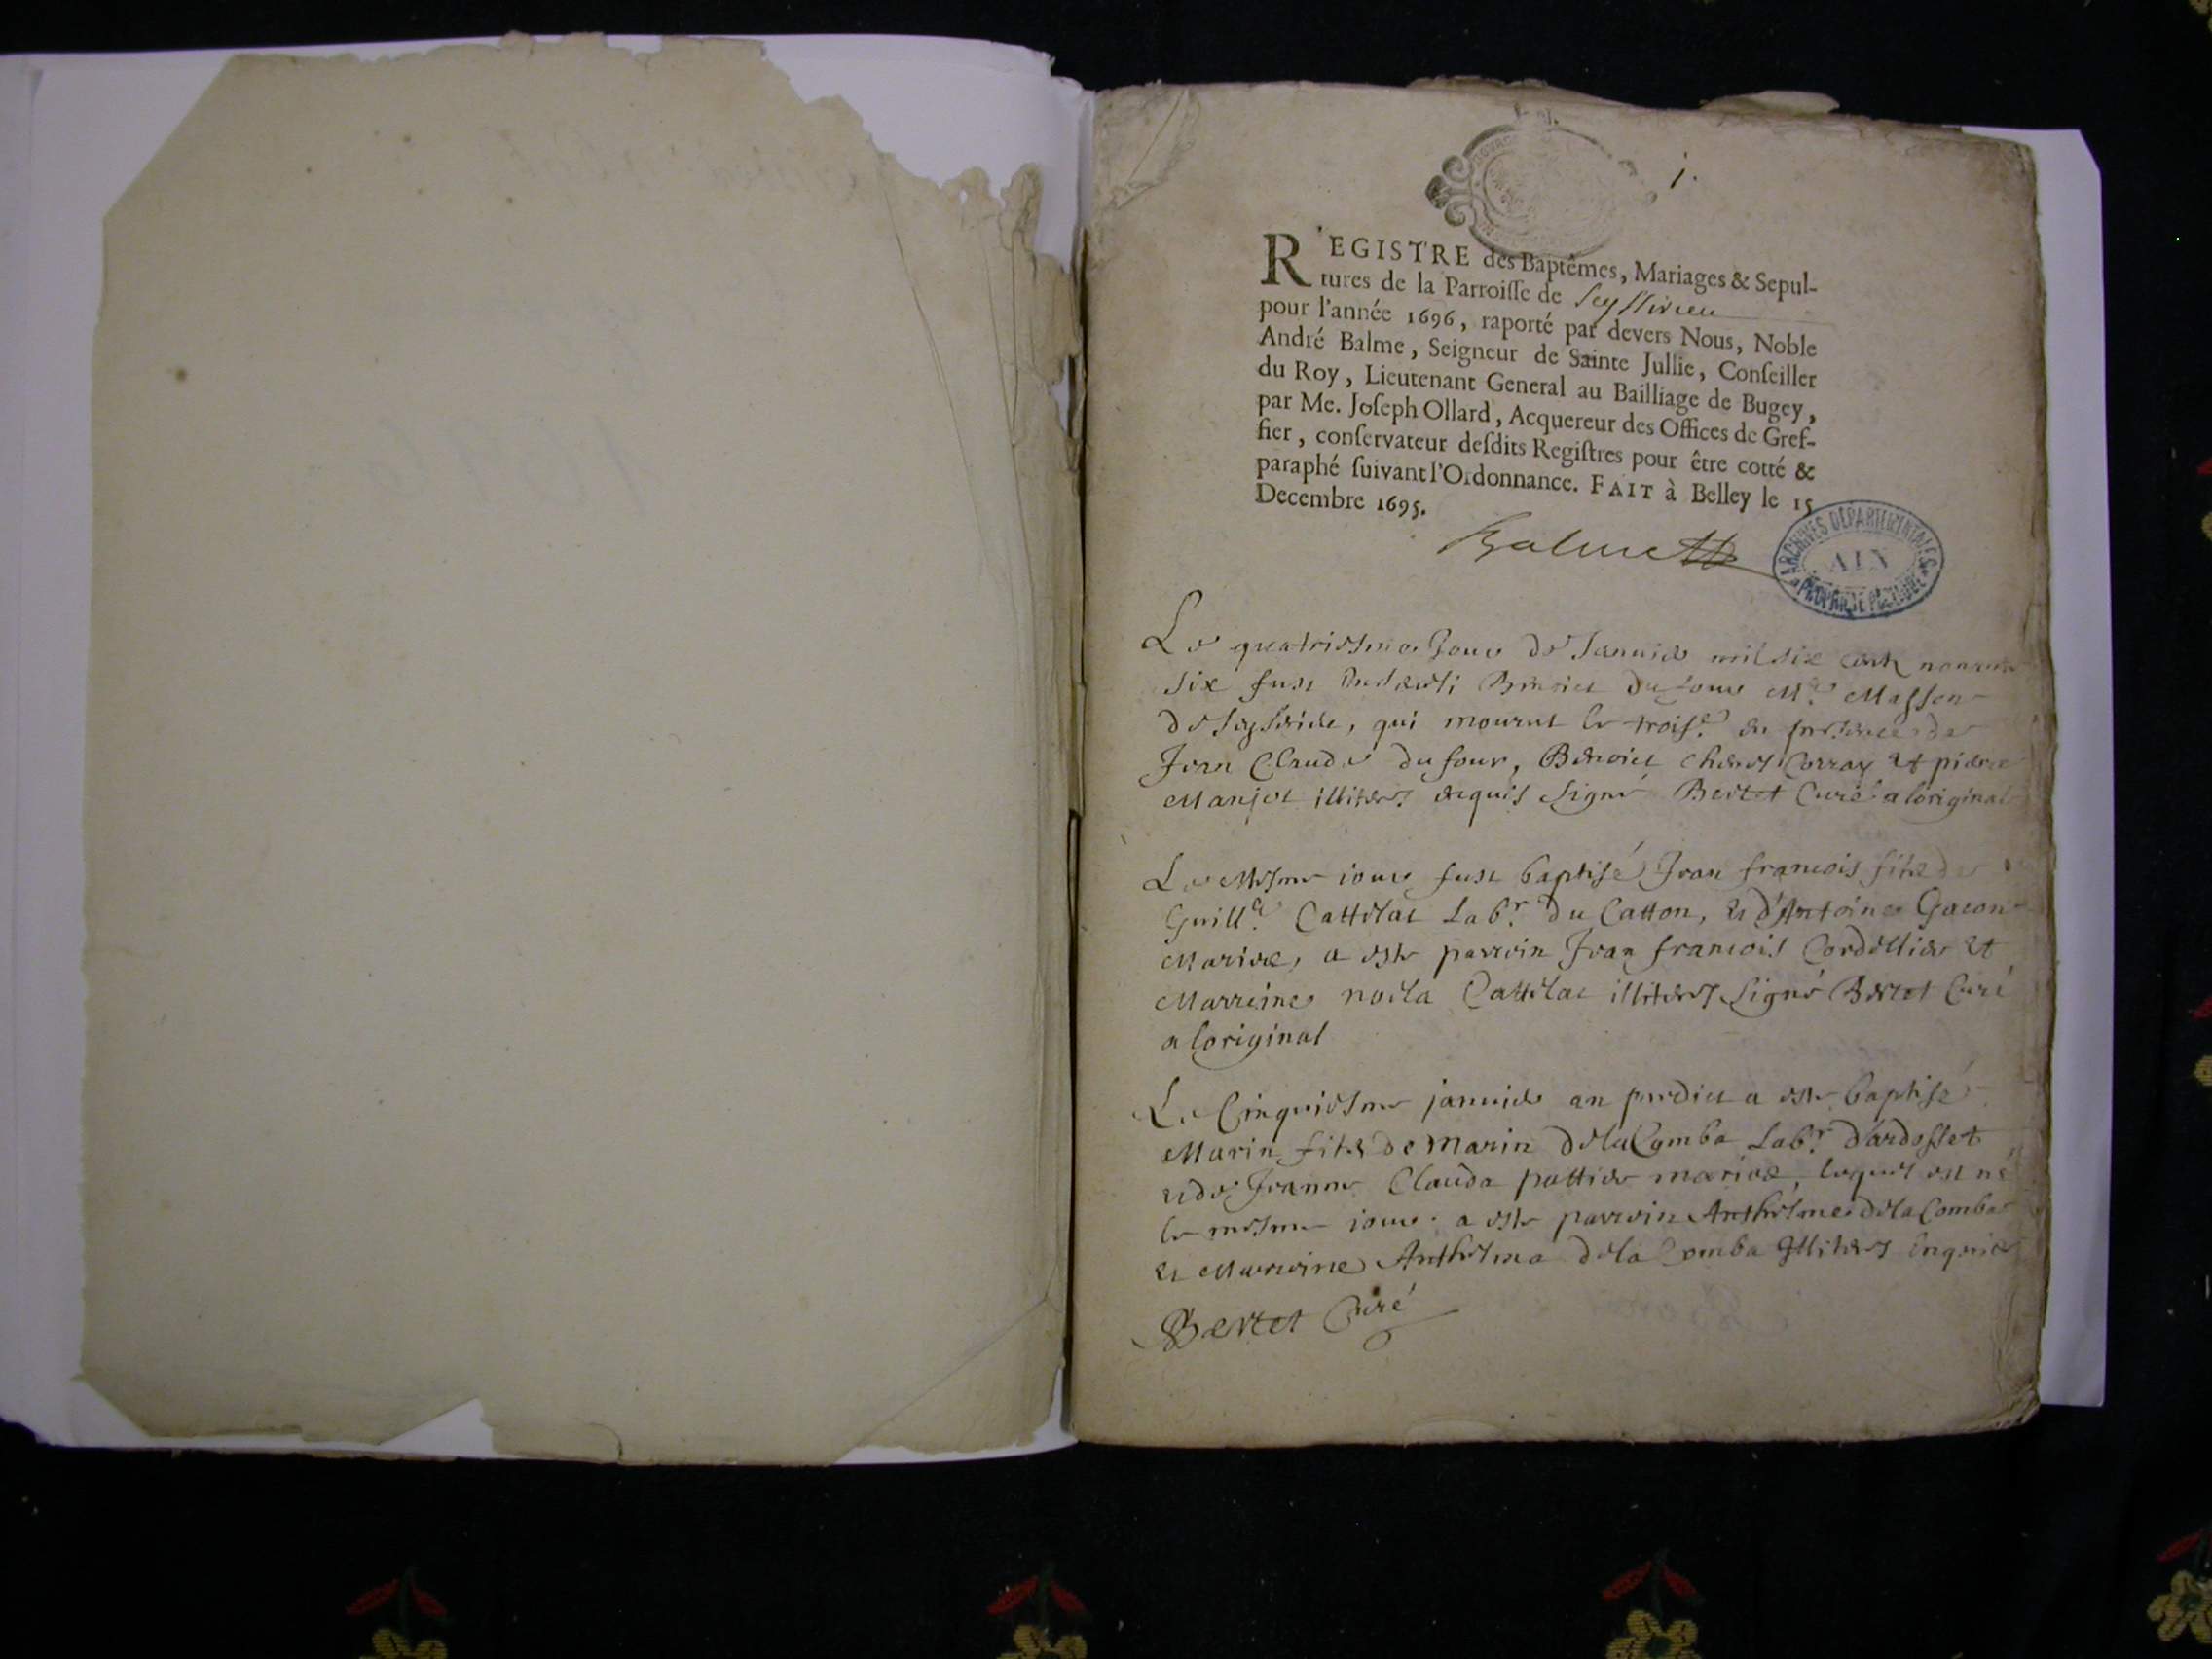 1.
REGISTRE des Baptêmes, Mariages & Sepul-
tures de la Parroisse de Seyssivieu
pour l'année 1696, raporté par devers Nous, Noble
André Balme, Seigneur de Sainte Jullie, Conseiller
du Roy, Lieutenant General au Bailliage de Bugey,
par Me. Joseph Ollard, Acquereur des Offices de Gref-
fier, conservateur desdits Registres pour être cotté &
paraphé suivant l'Ordonnance. FAIT à Belley le 15
Decembre 1695.
Balme
ARCHIVES DÉPARTEMENTALES
AIN
PROPRIÉTÉ PUBLIQUE
Le quatriesme Jour de Januier mil six cent nonante
six fust Benoict Dufour Me Masson
de, qui mourut le trois.e en presence de
Jean Claude Dufour, Benoict Corray et pierre
Manjot illiteres enquis Signé Bertet Curé a loriginal
Le Mesme iour fust baptisé Jean francois filz de
Guill.e Cattelat Lab.r du Catton, et d'Antoine Gacon
Mariee, a este parrein Jean francois Cordellier et
Marreine noela Cattelat illiteres Signé Bertet Curé
a loriginal
Le Cinquiesme januier an predict a este baptisé
Marin filz de Marin dela Comba Lab.r d'ardosset
et de Jeanne Clauda pattier mariee, lequel est né
le mesme iour. a este parrein Anthelme dela Comba
et Marreine Anthelma dela Comba Illiteres Enquis
Bertet Curé